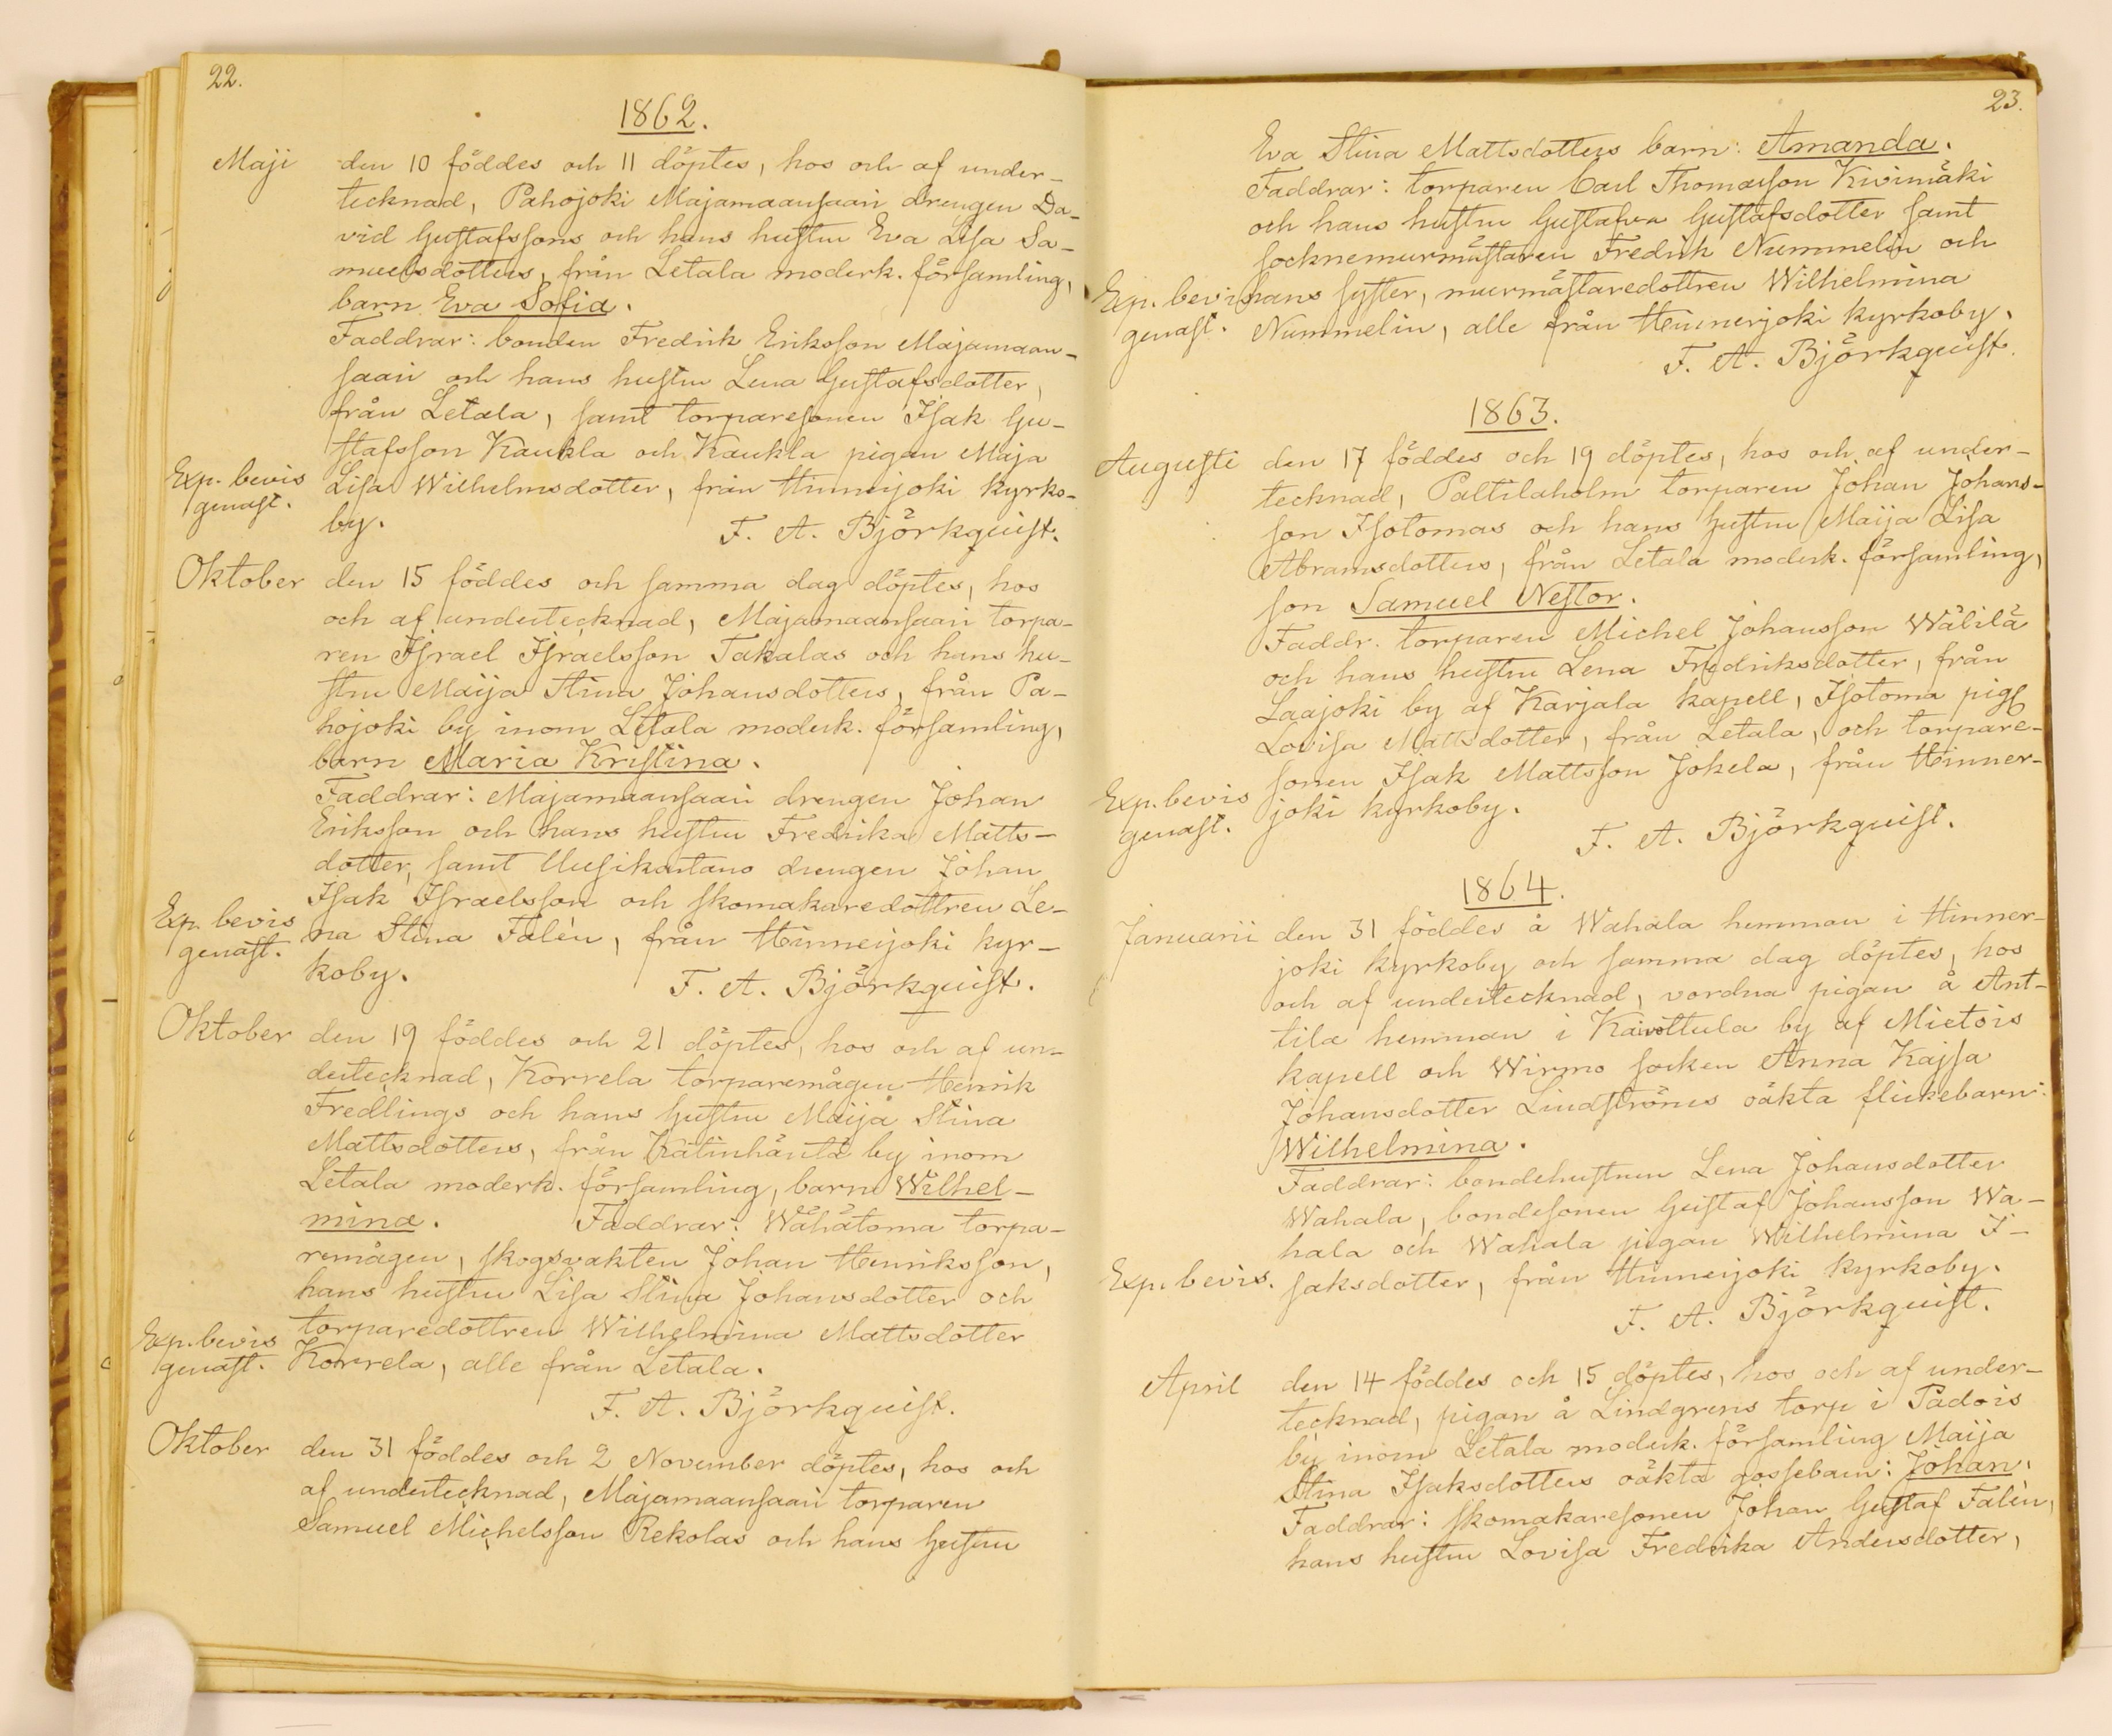 22.
1862.
Maji den 10 föddes och 11 döptes, hos och af under-
tecknad, Pahojoki Majamaansaari drengen Da-
vid Gustafssons och hans hustru Eva Lisa Sa-
muelsdotters, från Letala moderk. församling,
barn Eva Sofia.
Faddrar: bonden Fredrik Eriksson Majamaan-
saari och hans hustru Lena Gustafsdotter,
från Letala, samt torparesonen Isak Gu-
stafsson Kaukla och Kaukla pigan Maja
Exp. bevis Lisa Wilhelmsdotter, från Hinnerjoki kyrko-
genast. by. F. A. Björkquist.
Oktober den 15 föddes och samma dag döptes, hos
och af undertecknad, Majamaansaari torpa-
ren Israel Israelsson Takalas och hans hu-
stru Maija Stina Johansdotters, från Pa-
hojoki by inom Letala moderk. församling,
barn Maria Kristina.
Faddrar: Majamaansaari drengen Johan
Eriksson och hans hustru Fredrika Matts-
dotter, samt Uusikartano drengen Johan
Isak Israelsson och skomakaredottren Le-
Exp. bevis na Stina Falén, från Hinnerjoki kyr-
genast. koby. F. A. Björkquist.
Oktober den 19 föddes och 21 döptes, hos och af un-
dertecknad, Korrela torparemågen Henrik
Fredlings och hans hustru Maija Stina
Mattsdotters, från Kätinhäntä by inom
Letala moderk. församling, barn Wilhel-
mina. Faddrar: Wähätoma torpa-
remågen, skogsvakten Johan Henriksson,
hans hustru Lisa Stina Johansdotter och
Exp. bevis torparedottren Wilhelmina Mattsdotter
genast. Korrela, alle från Letala.
F. A. Björkquist.
Oktober den 31 föddes och 2 November döptes, hos och
af undertecknad, Majamaansaari torparen
Samuel Michelsson Rekolas och hans hustru
23.
Eva Stina Mattsdotters barn: Amanda.
Faddrar: torparen Carl Thomasson Kivimäki
och hans hustru Gustafva Gustafsdotter samt
socknemurmästaren Fredrik Nummelin och
Exp. bevis hans syster, murmästaredottren Wilhelmina
genast. Nummelin, alle från Hinnerjoki kyrkoby.
F. A. Björkquist.
1863.
Augusti den 17 föddes och 19 döptes, hos och af under-
tecknad, Paltilaholm torparen Johan Johans-
son Isotomas och hans hustru Maija Lisa
Abramsdotters, från Letala moderk. församling,
son Samuel Nestor.
Faddr. torparen Michel Johansson Wälilä
och hans hustru Lena Fredriksdotter, från
Laajoki by af Karjala kapell, Isotoma pig
Lovisa Mattsdotter, från Letala, och torpare-
Exp. bevis sonen Isak Mattsson Jokela, från Hinner-
genast. joki kyrkoby.
F. A. Björkquist.
1864.
Januarii den 31 föddes å Wahala hemman i Hinner-
joki kyrkoby och samma dag döptes, hos
och af undertecknad, vordna pigan å Ant-
tila hemman i Kaivottula by af Mietois
kapell och Wirmo socken Anna Kajsa
Johansdotter Lindströms oäkta flickebarn:
Wilhelmina.
Faddrar: bondehustrun Lena Johansdotter
Wahala, bondesonen Gustaf Johansson Wa-
hala och Wahala pigan Wilhelmina I-
Exp. bevis. saksdotter, från Hinnerjoki kyrkoby.
F. A. Björkquist.
April den 14 föddes och 15 döptes, hos och af under-
tecknad, pigan å Lindgrens torp i Padois
by inom Letala moderk. församling Maija
Stina Isaksdotters oäkta gossebarn: Johan.
Faddrar: skomakaresonen Johan Gustaf Falén,
hans hustru Lovisa Fredrika Andersdotter,